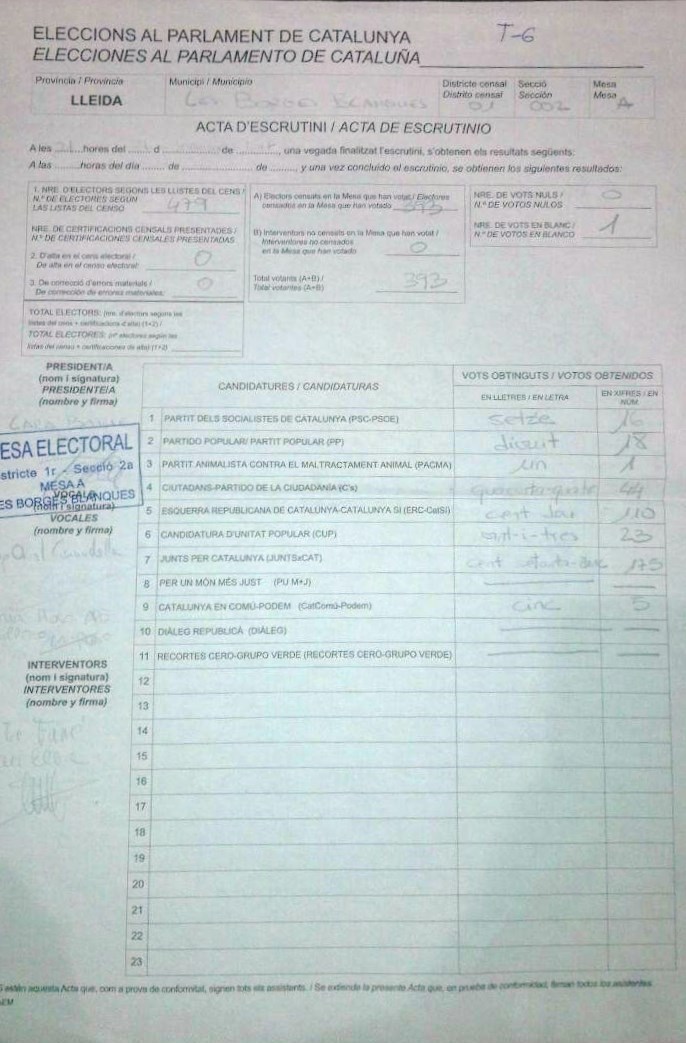 ELECCIONS AL PARLAMENT DE CATALUNYA T-6
ELECCIONES AL PARLAMENTO DE CATALUÑA
Provincia / Provincia Municipi / Municipio Districte censal Secció Mesa
Distrito censal Sección Mesa
LLEIDA Les Borges Blanques 01 002 A
ACTA D'ESCRUTINI / ACTA DE ESCRUTINIO
A les hores del d de , una vegada finalitzat l'escrutini, s'obtenen els resultats següents:
A las horas del día de de , y una vez concluido el escrutinio, se obtienen los siguientes resultados:
1. NRE. D'ELECTORS SEGONS LES LLISTES DEL CENS /
N.º DE ELECTORES SEGÚN
LAS LISTAS DEL CENSO 479
NRE. DE CERTIFICACIONS CENSALS PRESENTADES /
N.º DE CERTIFICACIONES CENSALES PRESENTADAS
2. D'alta en el cens electoral /
De alta en el censo electoral: 0
3. De correcció d'errors materials /
De corrección de errores materiales: 0
TOTAL ELECTORS: (nre. d'electors segons les
llistes del cens + certificacions d'alta) (1+2) /
TOTAL ELECTORES: (nº electores según las
listas del censo + certificaciones de alta) (1+2)
A) Electors censats en la Mesa que han votat / Electores
censados en la Mesa que han votado 393
B) Interventors no censats en la Mesa que han votat /
Interventores no censados
en la Mesa que han votado 0
Total votants (A+B) /
Total votantes (A+B) 393
NRE. DE VOTS NULS /
N.º DE VOTOS NULOS 0
NRE. DE VOTS EN BLANC /
N.º DE VOTOS EN BLANCO 1
PRESIDENT/A
(nom i signatura)
PRESIDENTE/A
(nombre y firma)
ESA ELECTORAL
stricte 1r - Secció 2a
MESA A
ES BORGES BLANQUES
VOCALS
(nom i signatura)
VOCALES
(nombre y firma)
INTERVENTORS
(nom i signatura)
INTERVENTORES
(nombre y firma)
CANDIDATURES / CANDIDATURAS VOTS OBTINGUTS / VOTOS OBTENIDOS
EN LLETRES / EN LETRA EN XIFRES / EN NÚM.
1 PARTIT DELS SOCIALISTES DE CATALUNYA (PSC-PSOE) setze 16
2 PARTIDO POPULAR/ PARTIT POPULAR (PP) divuit 18
3 PARTIT ANIMALISTA CONTRA EL MALTRACTAMENT ANIMAL (PACMA) un 1
4 CIUTADANS-PARTIDO DE LA CIUDADANÍA (C's) quaranta-quatre 44
5 ESQUERRA REPUBLICANA DE CATALUNYA-CATALUNYA SÍ (ERC-CatSí) cent deu 110
6 CANDIDATURA D'UNITAT POPULAR (CUP) vint-i-tres 23
7 JUNTS PER CATALUNYA (JUNTSxCAT) cent setanta-cinc 175
8 PER UN MÓN MÉS JUST (PU M+J)
9 CATALUNYA EN COMÚ-PODEM (CatComú-Podem) cinc 5
10 DIÀLEG REPUBLICÀ (DIÀLEG)
11 RECORTES CERO-GRUPO VERDE (RECORTES CERO-GRUPO VERDE)
12
13
14
15
16
17
18
19
20
21
22
23
S'estén aquesta Acta que, com a prova de conformitat, signen tots els assistents. / Se extiende la presente Acta que, en prueba de conformidad, firman todos los asistentes